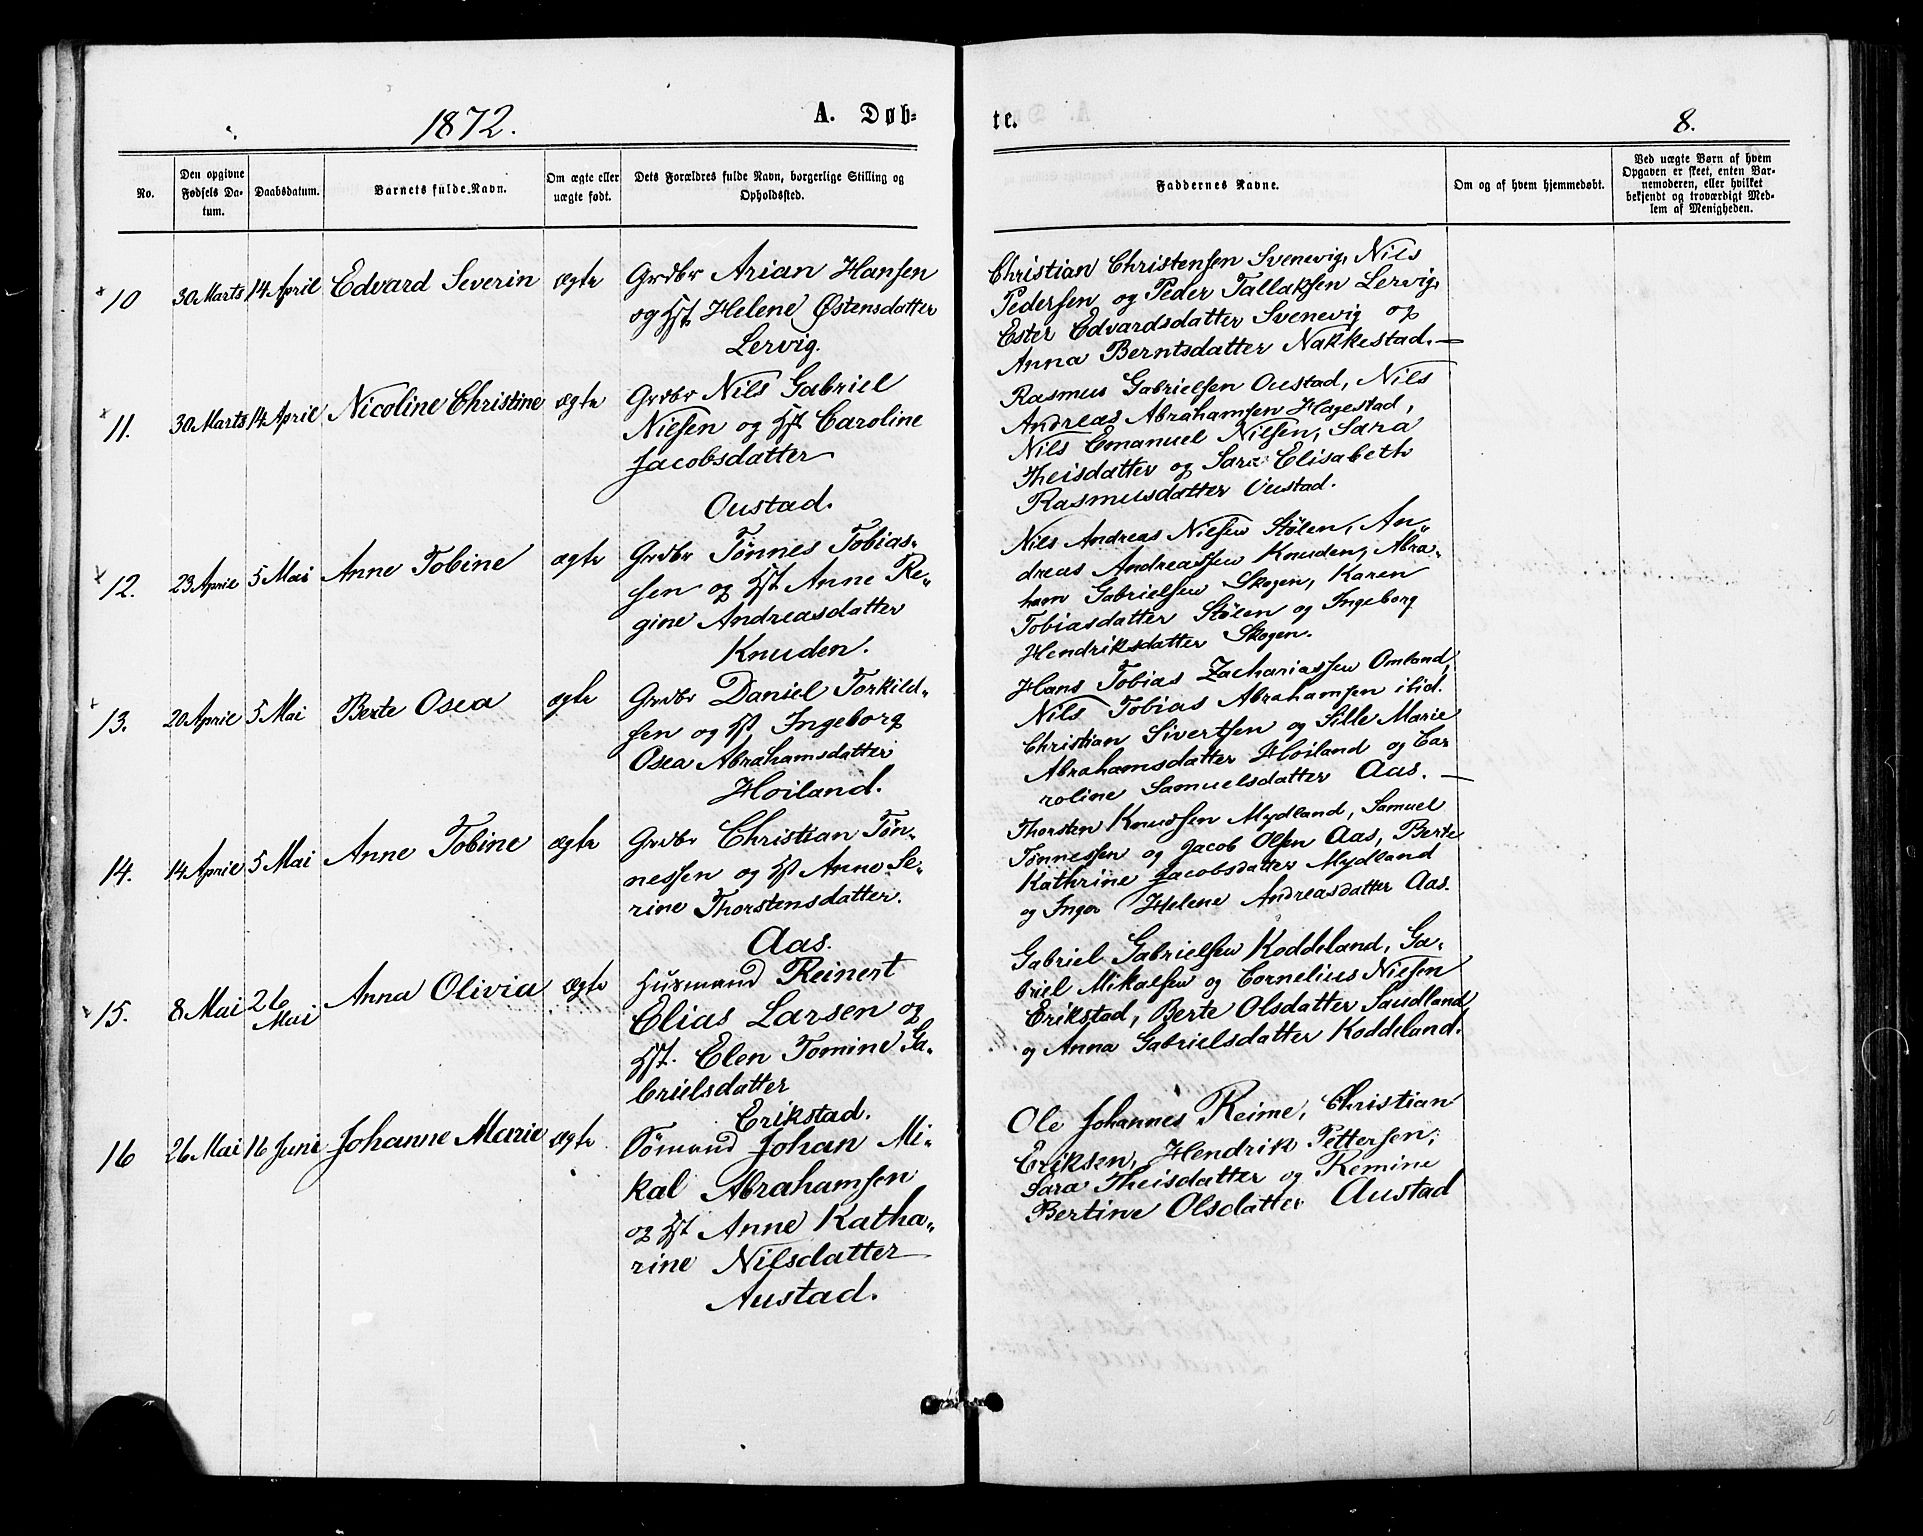 1872.
A. Døb=
te.
8.
No.
Den opgivne
Fødsels Da-
tum.
Daabsdatum.
Barnets fulde Navn.
Om ægte eller
uægte født.
Dets Forældres fulde Navn, borgerlige Stilling og
Opholdssted.
Faddernes Navne.
Om og af hvem hjemmedøbt.
Ved uægte Børn af hvem
Opgaven er skeet, enten Bar-
nemoderen, eller hvilket
bekjendt og troværdigt Med-
lem af Menigheden.
10 30 Marts 14 April Edvard Severin ægte
Grdbr Arian Hansen
og Hst Helene Østensdatter
Lervig.
Christian Christensen Svenevig, Nils
Pedersen og Peder Tallaksen Lervig,
Ester Edvardsdatter Svenevig og
Anna Berntsdatter Nakkestad. —
11. 30 Marts 14 April Nicoline Christine ægte
Grdbr Nils Gabriel
Nielsen og Hst Caroline
Jacobsdatter
Oustad.
Rasmus Gabrielsen Oustad, Nils
Andreas Abrahamsen Hagestad,
Nils Emanuel Nilsen, Sara
Theisdatter og Sara Elisabeth
Rasmusdatter Oustad.
12. 23 April 5 Mai Anne Tobine ægte
Grdbr Tønnes Tobias-
sen og Hst Anne Re-
gine Andreasdatter
Knuden.
Nils Andreas Nielsen Stølen, An-
dreas Andreassen Knuden, Abra-
ham Gabrielsen Skogen, Karen
Tobiasdatter Stølen og Ingeborg
Hendriksdatter Skogen.
13. 20 April 5 Mai Berte Osea ægte
Grdbr Daniel Torkild-
sen og Hst, Ingeborg
Osea Abrahamsdatter
Hoiland.
Hans Tobias Zachariassen Omland,
Nils Tobias Abrahamsen ibid.
Christian Sivertsen og Sille Marie
Abrahamsdatter Hoiland og Ca-
roline Samuelsdatter Aas. —
14. 14 April 5 Mai Anne Tobine ægte
Grdbr Christian Tøn-
nessen og Hst Anne Se-
rine Thorstensdatter.
Aas.
Thorsten Knudsen Mydland, Samuel
Tønnessen og Jacob Olsen Aas, Berte
Kathrine Jacobsdatter Mydland
og Inger Helene Andreasdatter Aas.
15. 8 Mai 26 Mai Anna Olivia ægte
Husmand Reinert
Elias Larsen og
Hst. Elen Tomine Ga-
brielsdatter
Erikstad.
Gabriel Gabrielsen Koddeland, Ga-
briel Mikalsen og Cornelius Nielsen
Erikstad, Berte Olsdatter Saudland
og Anna Gabrielsdatter Koddeland.
16 26 Mai 16 Juni Johanne Marie ægte
Sømand Johan Mi-
kal Abrahamsen
og Hst Anne Katha-
rine Nilsdatter
Austad.
Ole Johannes Reime, Christian
Eriksen, Hendrik Pettersen,
Sara Theisdatter og Remine
Bertine Olsdatter Austad